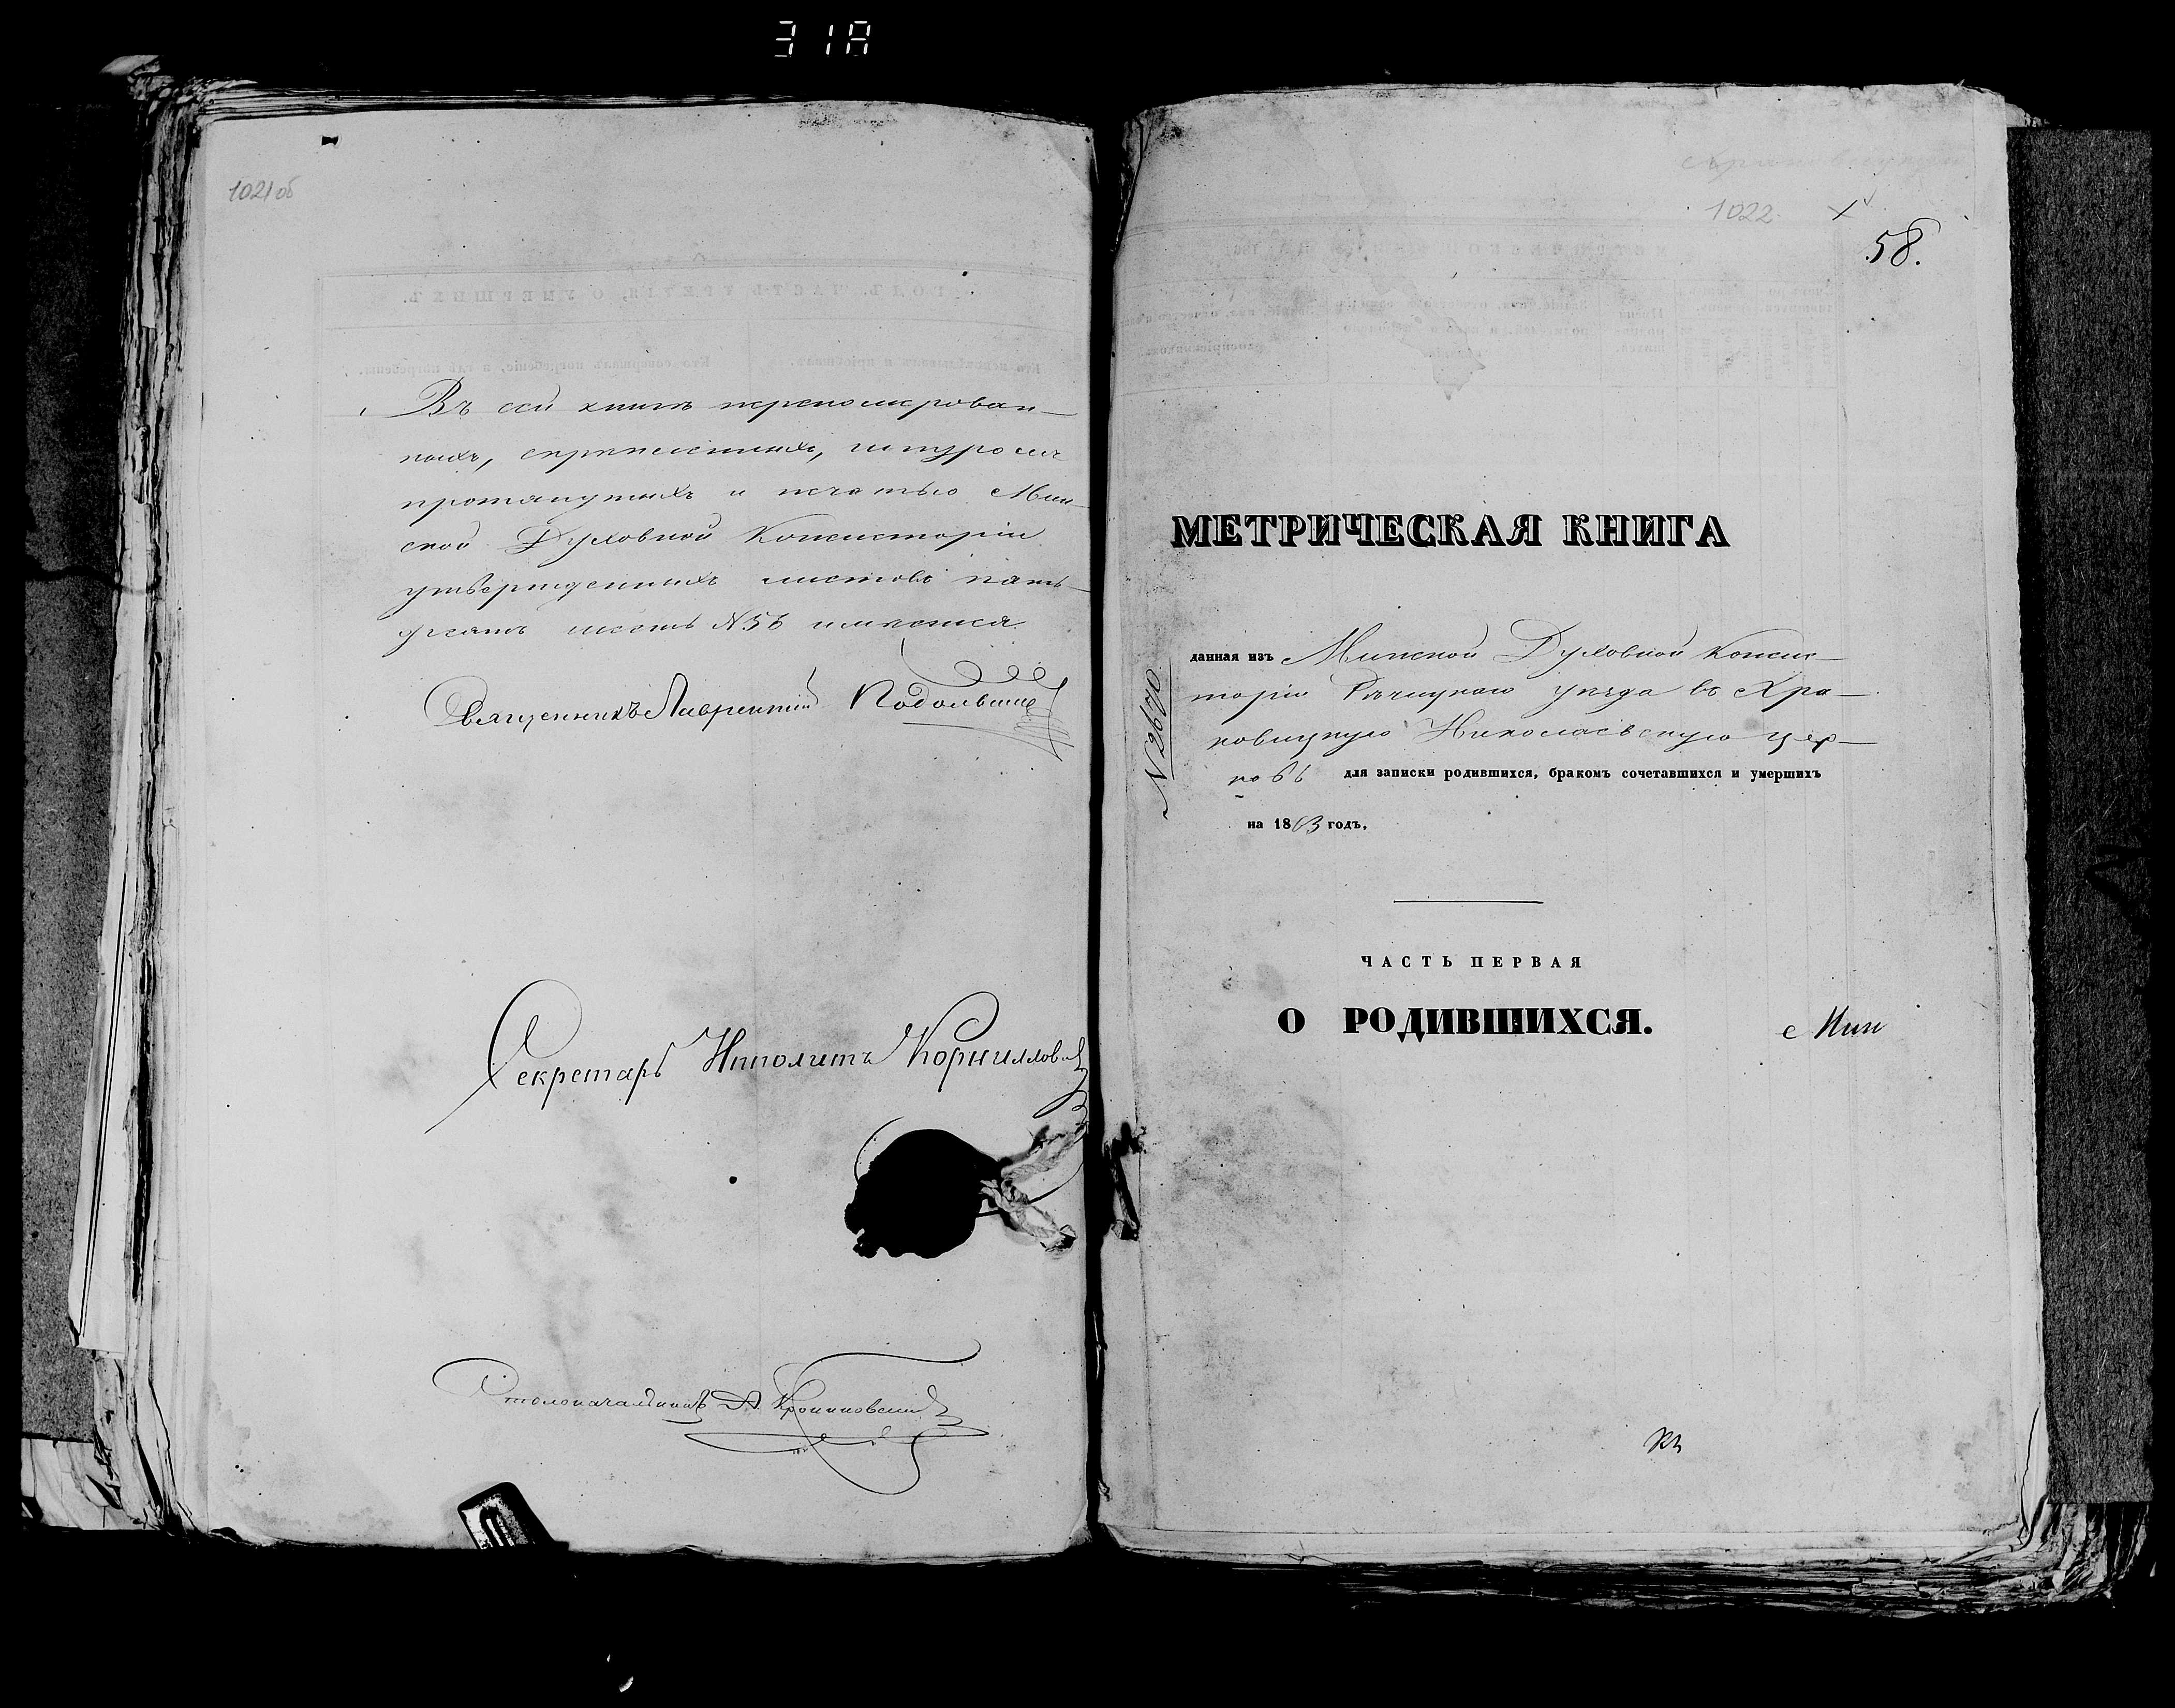 31A
1021об
Въ сей книгѣ перенумерован-
ныхъ, скрѣпленныхъ, шнуромъ
протянутыхъ и печатью Мин-
ской Духовной Консисторіи
утвержденныхъ листовъ пять-
десятъ шесть №56 имѣется.
Священникъ Лаврентій
Секретарь Ипполитъ Корниллов
Столоначальникъ
1022
58.
МЕТРИЧЕСКАЯ КНИГА
данная изъ Минской Духовной Консис-
торіи Рѣчицкаго уѣзда въ Хра-
ковицкую Николаевскую цер-
ковь для записки родившихся, бракомъ сочетавшихся и умершихъ
на 1863 годъ,
№2670
ЧАСТЬ ПЕРВАЯ
О РОДИВШИХСЯ.
Мин